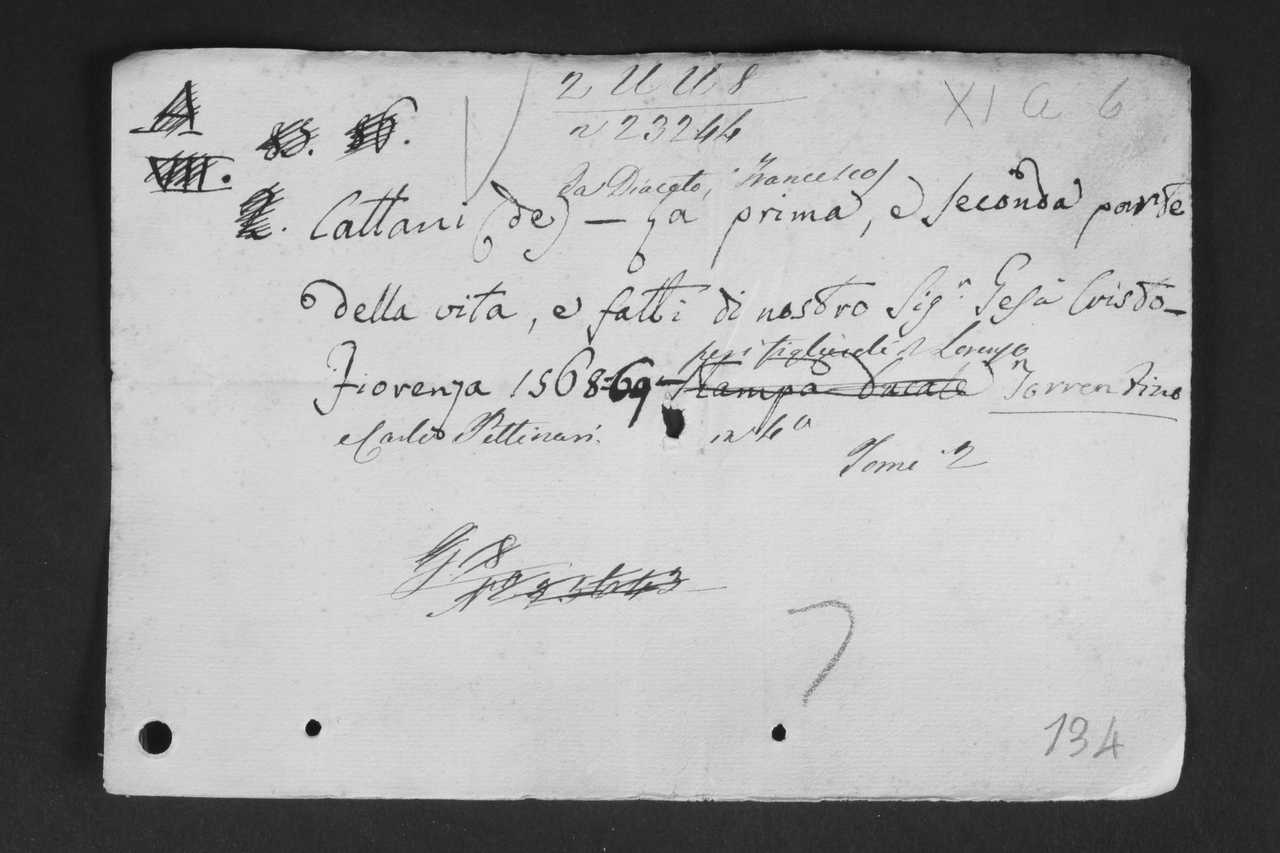 2 U U 8
XI a 6
n 23244
A
VIII. 83. 86.
da Diaceto, Francesco
2. Cattani (de) — La prima, e Seconda parte
della vita, e fatti di nostro Sig.r Gesù Cristo_
per i figliuoli di Lorenzo
Fiorenza 1568-69 — Stampa Ducale Torrentino
e Carlo Pettinari. in 4°
Tomi 2
134